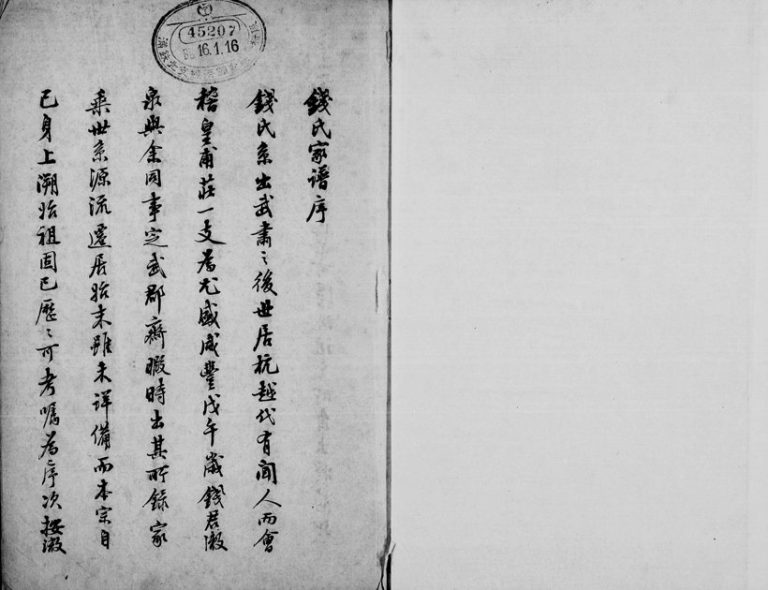 錢氏家譜序
錢氏系出武肅〻後世居杭越代有聞人而會
稽皇甫莊一支為尤盛咸豐戊午歲錢君漵
泉與余同事定武郡齋暇時出其所錄家
乘世系源流遷居始末雖未詳備而本宗自
已身上溯始祖固已歷〻可考囑為序次按漵
45207
16.1.16